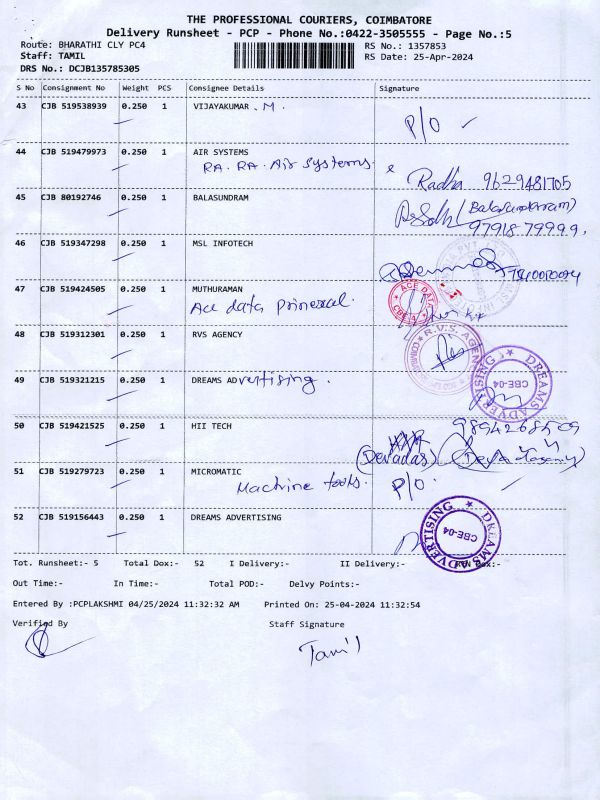 THE PROFESSIONAL COURIERS, COIMBATORE
Delivery Runsheet - PCP - Phone No.:0422-3505555 - Page No.:5
Route: BHARATHI CLY PC4 RS No.: 1357853
Staff: TAMIL RS Date: 25-Apr-2024
DRS No.: DCJB135785305
S No Consignment No Weight PCS Consignee Details Signature
43 CJB 519538939 0.250 1 VIJAYAKUMAR . M.
P/O
44 CJB 519479973 0.250 1 AIR SYSTEMS
RA. RA. Air Systems.
Radha 9629481705
45 CJB 80192746 0.250 1 BALASUNDRAM
(Balasundaram)
97918 79999,
46 CJB 519347298 0.250 1 MSL INFOTECH
47 CJB 519424505 0.250 1 MUTHURAMAN
Ace data
ACE DATA
CBE-4
48 CJB 519312301 0.250 1 RVS AGENCY
R.V.S. AGENCY
49 CJB 519321215 0.250 1 DREAMS ADvertising.
DREAMS ADVERTISING
CBE-04
50 CJB 519421525 0.250 1 HII TECH
(Devadas)
51 CJB 519279723 0.250 1 MICROMATIC
Machine tools. P/O.
52 CJB 519156443 0.250 1 DREAMS ADVERTISING
DREAMS ADVERTISING
CBE-04
Tot. Runsheet:- 5 Total Dox:- 52 I Delivery:- II Delivery:- Dox:-
Out Time:- In Time:- Total POD:- Delvy Points:-
Entered By :PCPLAKSHMI 04/25/2024 11:32:32 AM Printed On: 25-04-2024 11:32:54
Verified By Staff Signature
Tamil